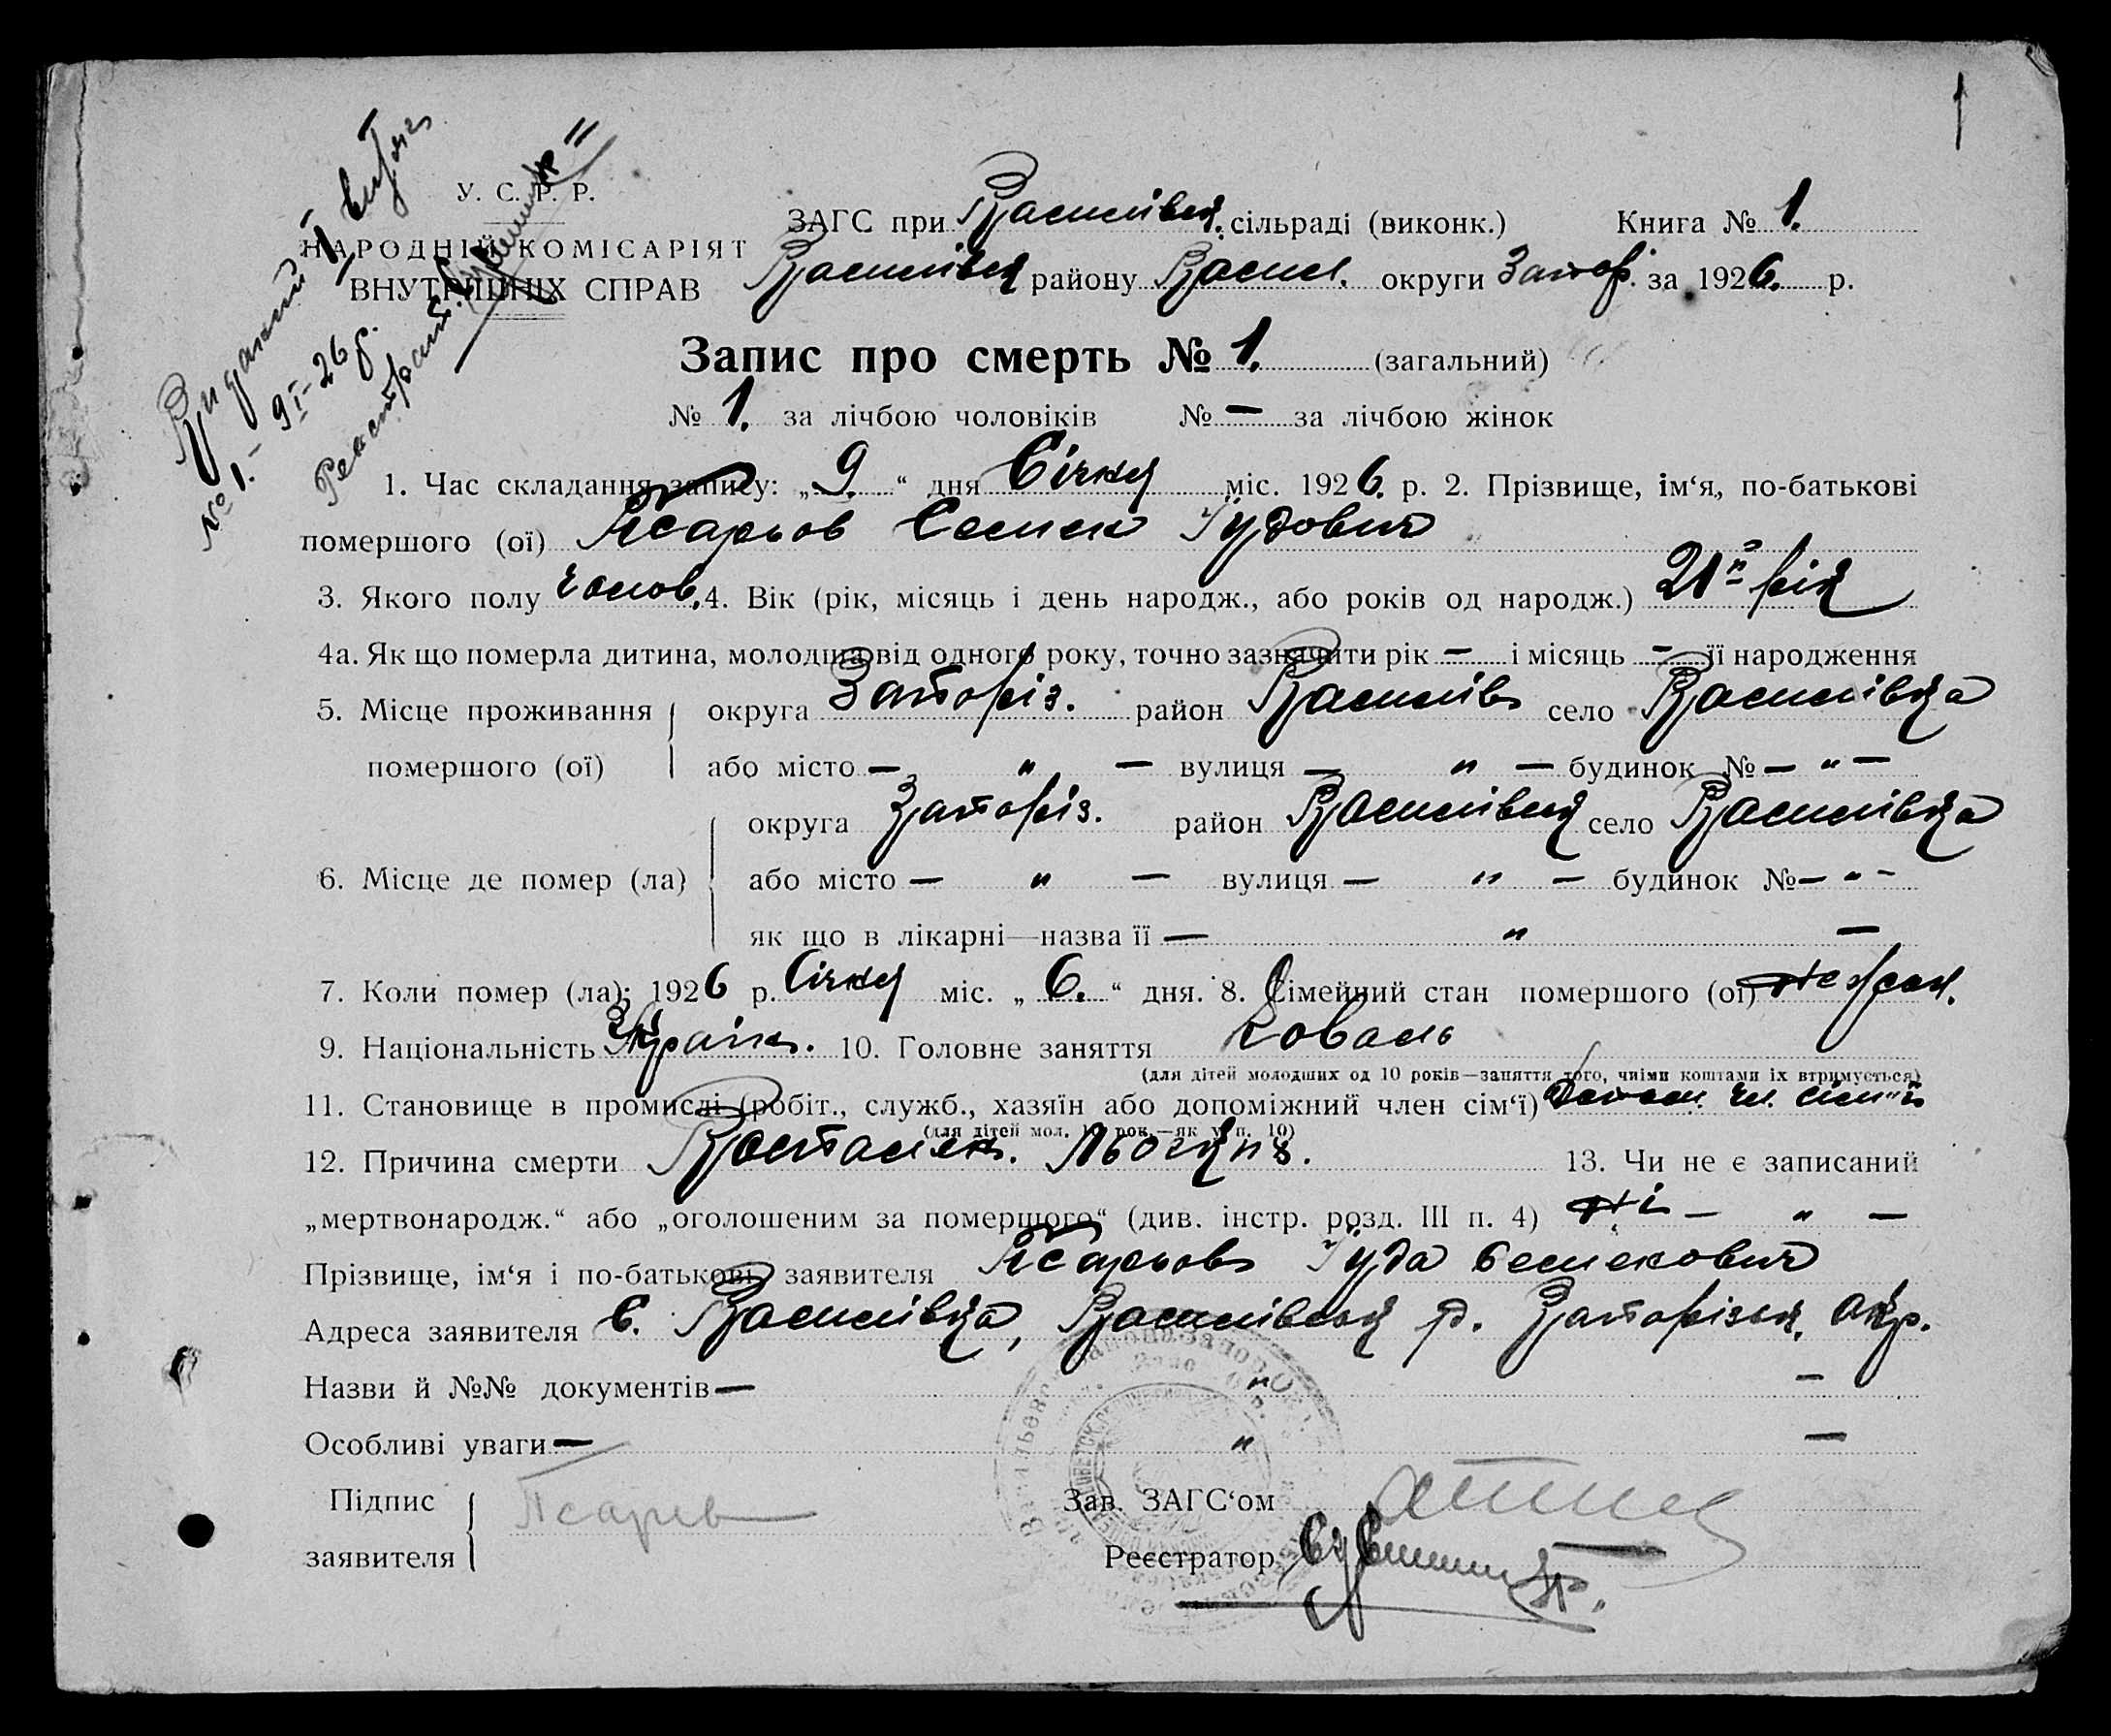 Виданий 1 витяг
№ 1. 9/I-26 р.
Реєстрат.
1
У. С. Р. Р.
НАРОДНІЙ КОМІСАРІЯТ
ВНУТРІШНІХ СПРАВ
ЗАГС при Василівськ. сільраді (виконк.) Книга № 1.
Василівськ району Васил. округи Запор. за 1926. р.
Запис про смерть № 1. (загальний)
№ 1. за лічбою чоловіків № — за лічбою жінок
1. Час складання запису: „ 9. “ дня Січня міс. 1926. р. 2. Прізвище, ім‘я, по-батькові
помершого (ої) Псарьов Семен Іудович
3. Якого полу чолов. 4. Вік (рік, місяць і день народж., або років од народж.) 21 рік
4а. Як що померла дитина, молодша від одного року, точно зазначити рік — і місяць — її народження
5. Місце проживання округа Запоріз. район Василівс село Василівка
помершого (ої) або місто — „ — вулиця — „ — будинок № — „ —
округа Запоріз. район Василівськ село Василівка
6. Місце де помер (ла) або місто — „ — вулиця — „ — будинок № — „ —
як що в лікарні—назва її — „ —
7. Коли помер (ла): 1926 р. Січня міс. „ 6. “ дня. 8. Сімейний стан помершого (ої)
9. Національність Україн. 10. Головне заняття Коваль
(для дітей молодших од 10 років—заняття того, чиїми коштами їх втримується)
11. Становище в промислі (робіт., служб., хазяїн або допоміжний член сім‘ї) Допом. чл. сім"ї
(для дітей мол. 10 рок.—як у п. 10)
12. Причина смерти 13. Чи не є записаний
„мертвонародж.“ або „оголошеним за померщого“ (див. інстр. розд. III п. 4) Ні — „ —
Прізвище, ім‘я і по-батькові заявителя Псарьов Іуда Семенович
Адреса заявителя С. Василівка, Василівськ р. Запорізьк. Окр.
Назви й №№ документів — „ —
Особливі уваги — „ —
Підпис Псарев Зав. ЗАГС‘ом
заявителя Реєстратор